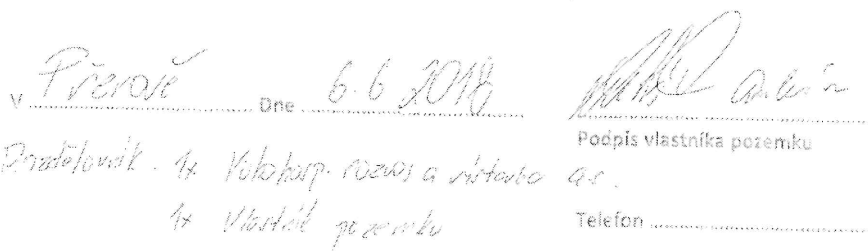 V Přerově Dne 6.6 2018
Podpis vlastníka pozemku
Rozdělovník. 1x rozvoj a výstavba a.s.
1x Vlastník pozemku
Telefon